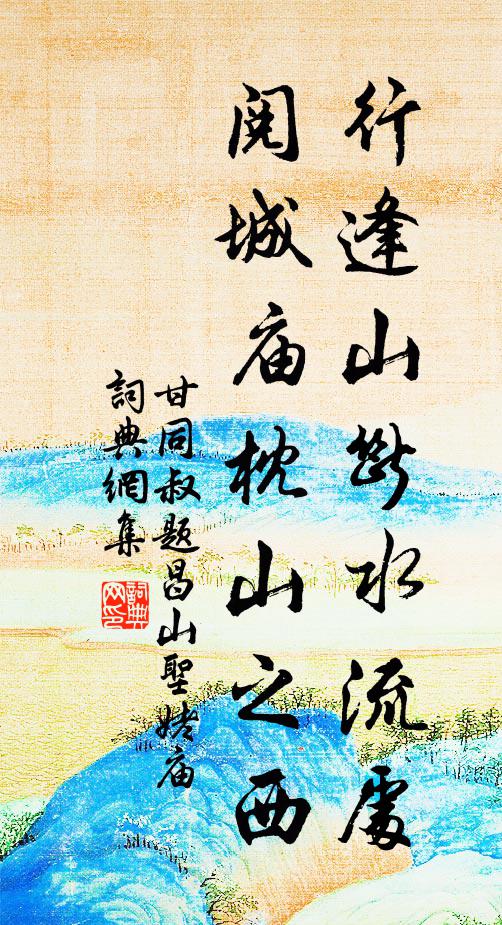 行逢山斷水流處
閱城庙枕山之西
甘同叔題昌山聖姥庙
詞典網集
詞典网印